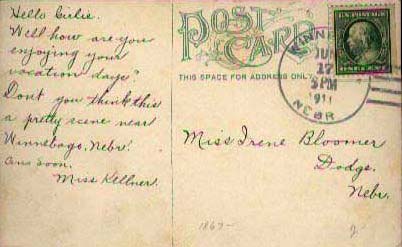 Hello Girlie.
Well how are you
enjoying your
vacation days?
Dont you think this
a pretty scene near
Winnebago, Nebr.
Ans soon.
Miss Kellner.
POST
CARD
THIS SPACE FOR ADDRESS ONLY.
WINNEB
JUN
17
5 PM
1911
NEBR
Miss Irene Bloomer
Dodge,
Nebr.
1867-